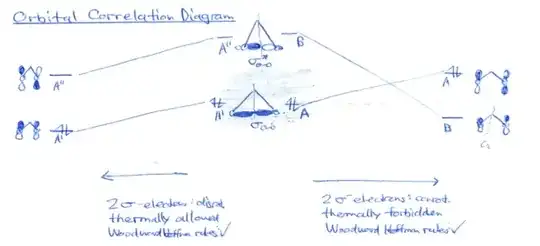 Orbital Correlation Diagram
A" B
σ*
A" A
A' A' B
σ C₂
2σ-electrons: disrot.
thermally allowed
Woodward Hoffman rules ✓
2σ electrons: conrot.
thermally forbidden
Woodward Hoffman rules ✓